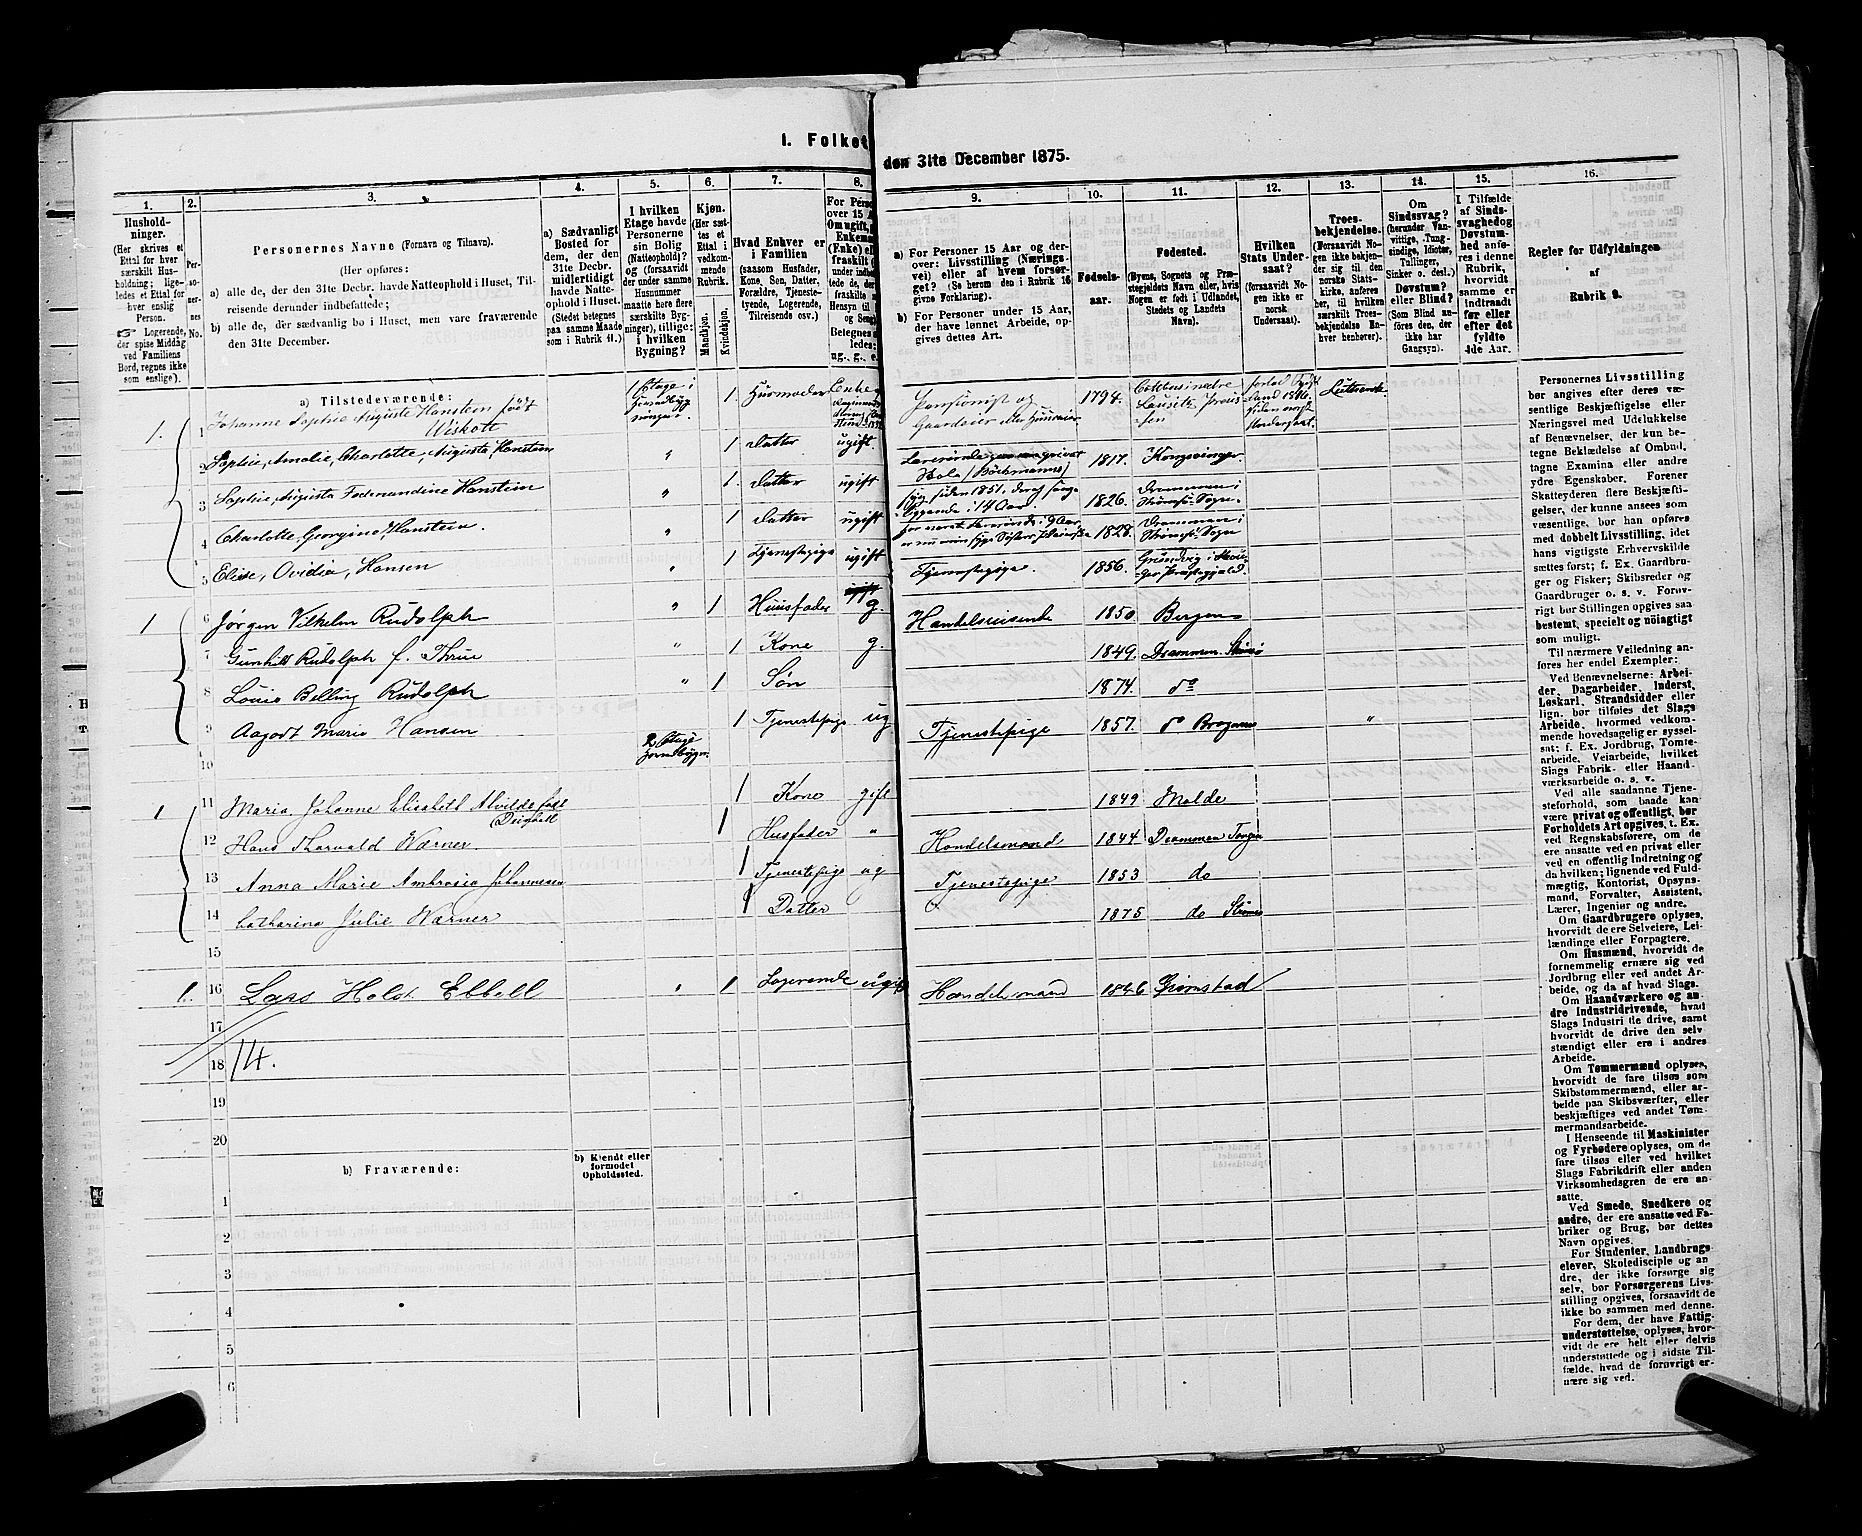 I. Folket
den 31te December 1875.
1.
Hushold-
ninger.
(Her skrives et
Ettal for hver
særskilt Hus-
holdning; lige-
ledes et Ettal for
hver enslig
Person.
Logerende,
der spise Middag
ved Familiens
Bord, regnes ikke
som enslige).
2.
Per-
so-
ner-
nes
No.
3.
Personernes Navne (Fornavn og Tilnavn).
(Her opføres:
a) alle de, der den 31te Decbr. havde Natteophold i Huset, Til-
reisende derunder indbefattede;
b) alle de, der sædvanlig bo i Huset, men vare fraværende
den 31te December.
4.
a) Sædvanligt
Bosted for
dem, der den
31te Decbr.
midlertidigt
havde Natte-
ophold i Huset.
(Stedet betegnes
paa samme Maade
som i Rubrik 11.)
5.
I hvilken
Etage havde
Personerne
sin Bolig
(Natteophold)?
og (forsaavidt
der under samme
Husnummer
maatte høre flere
særskilte Byg-
ninger), tillige:
i hvilken
Bygning?
6.
Kjøn.
(Her sæt-
tes et
Ettal i
vedkom-
mende
Rubrik.
Mandkjøn.
Kvindekjøn.
7.
Hvad Enhver er
i Familien
(saasom Husfader,
Kone, Søn, Datter,
Forældre, Tjeneste-
tyende, Logerende,
Tilreisende osv.)
8.
For Person
over 15 A
Om ugift,
Enkema
(Enke) el
fraskilt (
under
tede de,
fraskilte
Hensyn til
og Seng
Betegnes
ledes:
ug., g., e.
9.
a) For Personer 15 Aar og der-
over: Livsstilling (Nærings-
vei) eller af hvem forsør-
get? (Se herom den i Rubrik 16
givne Forklaring).
b) For Personer under 15 Aar,
der have lønnet Arbeide, op-
gives dettes Art.
10.
Fødsels-
aar.
11.
Fødested.
(Byens, Sognets og Præ-
stegjeldets Navn eller, hvis
Nogen er født i Udlandet,
Stedets og Landets
Navn).
12.
Hvilken
Stats Under-
saat?
(forsaavidt No-
gen ikke er
norsk
Undersaat).
13.
Troes-
bekjendelse.
(Forsaavidt No-
gen ikke bekjen-
der sig til den
norske Stats-
kirke, anføres
her, til hvilken
særskilt Troes-
bekjendelse En-
hver henhører).
14.
Om
Sindssvag?
(herunder Van-
vittige, Tung-
sindige, Idioter,
Tullinger,
Sinker o. desl.)
Døvstum?
eller Blind?
(Som Blind an-
føres den, der
ikke har
Gangsyn).
15.
I Tilfælde
af Sinds-
svaghed og
Døvstum-
hed anfø-
res i denne
Rubrik,
hvorvidt
samme er
indtraadt
før eller
efter det
fyldte
4de Aar.
16.
Regler for Udfyldningen
af
Rubrik 9.
a) Tilstedeværende:
1. 1 Johanne Sophie Auguste Hanstein født
Wiskott
1 Etage i
1 Husmoder Enke
Pensionist og
Gaardeier
1794.
Lausitz
Luthersk
2 Sophie, Amalie, Charlotte, Augusta, Hanstein " 1 Datter ugift. 1817. Kongsvinger
3 Sophie, Augusta Ferdinandine Hanstein " 1 Datter ugift Syg siden 1851. 1826. Drammen i
Strømsø Sogn
4 Charlotte, Georgine, Hanstein. " 1 Datter ugift 1828. Drammen i
Strømsø Sogn
5 Elise, Ovidia, Hansen " 1 Tjenestepige ugift Tjenestepige. 1856.
1 6 Jørgen Vilhelm Rudolph " 1 Huusfader g. Handelsreisende 1850 Bergen
7 Gunhild Rudolph f. Thrue " 1 Kone g. 1849. Drammen. Strømsø
8 Louis Belling Rudolph " 1 Søn 1874. do
9 Aagodt Marie Hansen 1 Tjenestepige ug Tjenestepige 1857. do Bragernes "
10 2 Etage
1 11 Maria Johanne Elisabeth Alvilde født
1 Kone gift 1849 Molde
12 Hans Thorvald Wærner. 1 Husfader " Handelsmand 1844 Drammen Tangen
13 Anna Marie Ambrosia Johannesen 1 Tjenestepige ug Tjenestepige 1853 do
14 Catharina Julie Wærner 1 Datter 1875 do Strømsø
15
1. 16 Lars Holst Ebbell " 1 Logerende ugift Handelsmand 1846 Grimstad
17
18 14.
19
20
b) Fraværende:
b) Kjendt eller
formodet
Opholdssted.
1
2
3
4
5
6
Personernes Livsstilling
bør angives efter deres væ-
sentlige Beskjæftigelse eller
Næringsvei med Udelukkelse
af Benævnelser, der kun be-
tegne Beklædelse af Ombud,
tagne Examina eller andre
ydre Egenskaber. Forener
Skatteyderen flere Beskjæfti-
gelser, der kunne ansees som
væsentlige, bør han opføres
med dobbelt Livsstilling, idet
hans vigtigste Erhvervskilde
sættes først; f. Ex. Gaardbru-
ger og Fisker; Skibsreder og
Gaardbruger o. s. v. Forøv-
rigt bør Stillingen opgives saa
bestemt, specielt og nøiagtigt
som muligt.
Til nærmere Veiledning an-
føres her endel Exempler:
Ved Benævnelserne: Arbei-
der, Dagarbeider, Inderst,
Løskarl, Strandsidder eller
lign. bør tilføies det Slags
Arbeide, hvormed vedkom-
mende hovedsagelig er syssel-
sat: f. Ex. Jordbrug, Tomte-
arbeide, Veiarbeide, hvilket
Slags Fabrik- eller Haand-
værksarbeide o. s. v.
Ved alle saadanne Tjene-
steforhold, som baade kan
være privat og offentligt, bør
Forholdets Art opgives, t. Ex.
ved Regnskabsførere, om de
ere ansatte ved en privat eller
ved en offentlig Indretning og
da hvilken; lignende ved Fuld-
mægtig, Kontorist, Opsyns-
mand, Forvalter, Assistent,
Lærer, Ingeniør og andre.
Om Gaardbrugere oplyses,
hvorvidt de ere Selveiere, Lei-
lændinge eller Forpagtere.
Om Husmænd, hvorvidt de
fornemmelig ernære sig ved
Jordbrug eller ved andet Ar-
beide, og da af hvad Slags.
Om Haandværkere og an-
dre Industridrivende, hvad
Slags Industri de drive, samt
hvorvidt de drive den selv-
stændigt eller ere i andres
Arbeide.
Om Tømmermænd oplyses,
hvorvidt de fare tilsøs som
Skibstømmermænd, eller ar-
beide paa Skibsværfter, eller
beskjæftiges ved andet Tøm-
mermandsarbeide.
I Henseende til Maskinister
og Fyrbødere oplyses, om de
fare tilsøs eller ved hvilket
Slags Fabrikdrift eller anden
Virksomhedsgren de ere an-
satte.
Ved Smede, Snedkere og
andre, der ere ansatte ved Fa-
briker og Brug, bør dettes
Navn opgives.
For Studenter, Landbrugs-
elever, Skoledisciple og an-
dre, der ikke forsørge sig
selv, bør Forsørgerens Livs-
stilling opgives, forsaavidt de
ikke bo sammen med denne.
For dem, der have Fattig-
understøttelse, oplyses, hvor-
vidt de ere helt eller delvis
understøttede og i sidste Til-
fælde, hvad de forøvrigt er-
nære sig ved.